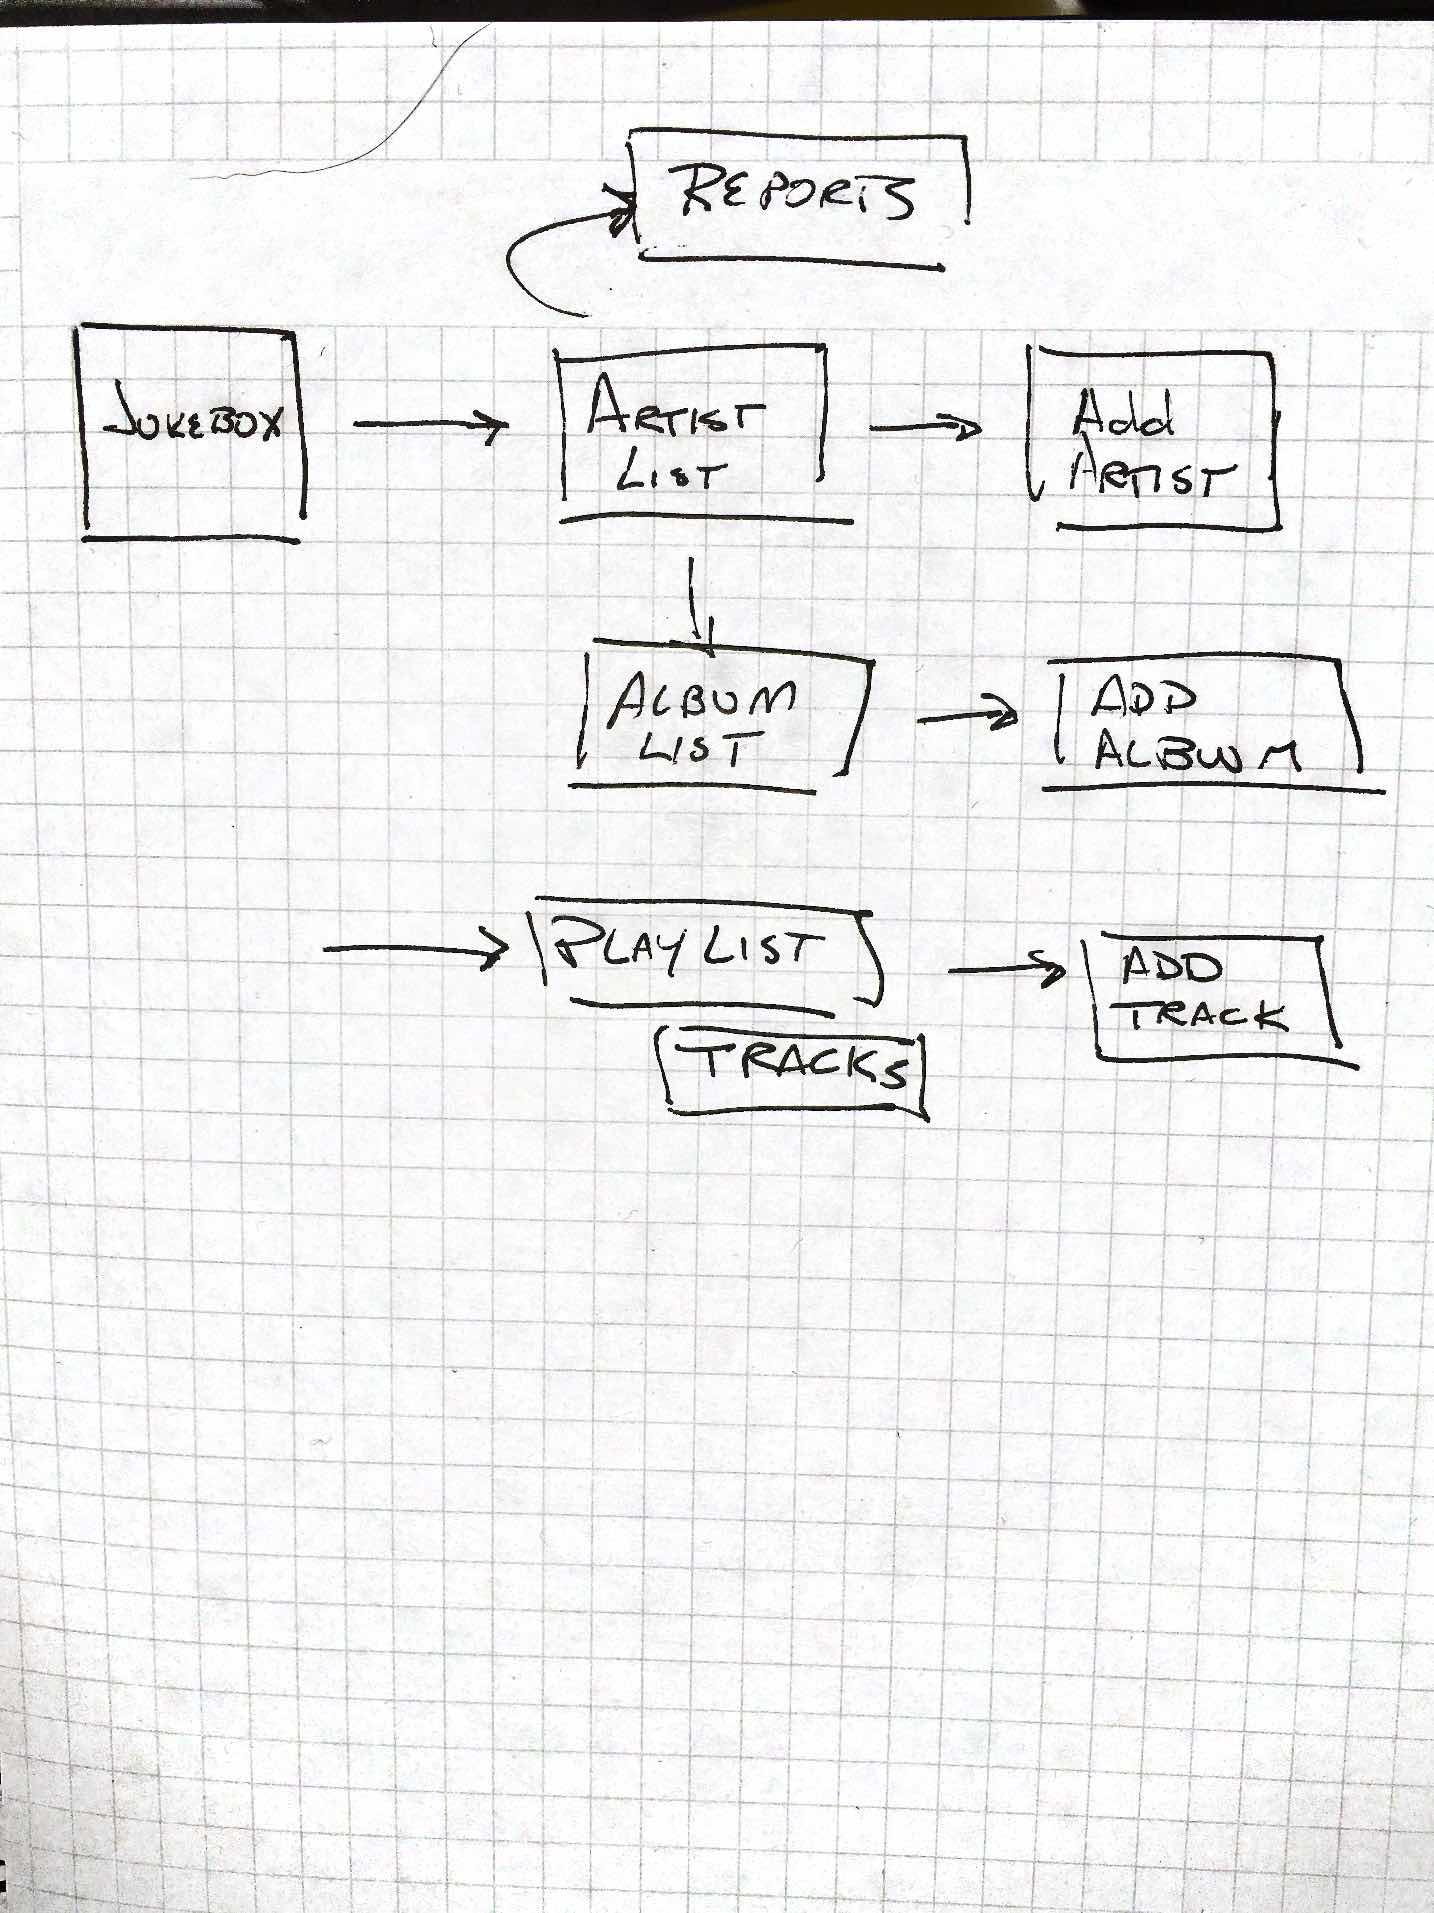 REPORTS
JUKEBOX
ARTIST
LIST
Add
ARTIST
ALBUM
LIST
ADD
ALBUM
PLAY LIST
TRACKS
ADD
TRACK